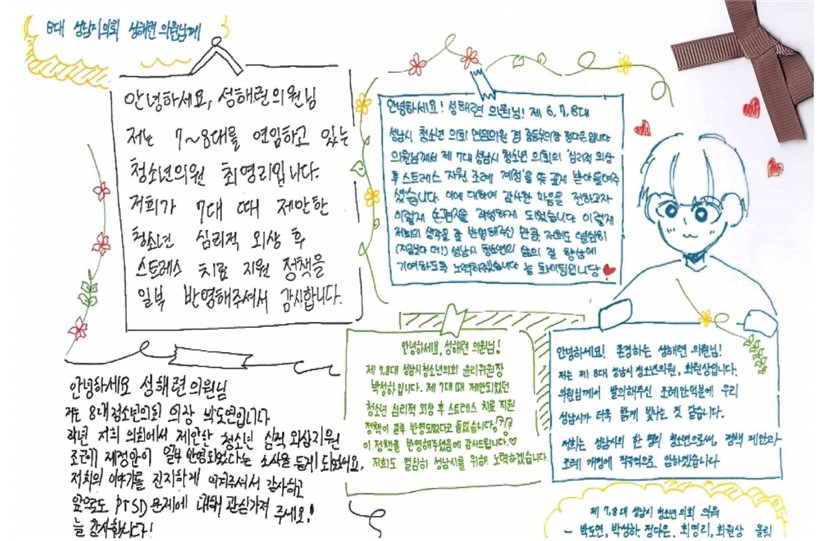 8대 성남시의회 성해련 의원님께
안녕하세요, 성해련 의원님
저는 7~8대를 연임하고 있는
청소년의원 최영리입니다.
저희가 7대 때 제안한
청소년 심리적 외상 후
스트레스 치료 지원 정책을
일부 반영해주셔서 감사합니다.
안녕하세요! 성해련 의원님! 제 6, 7, 8대
성남시 청소년 의회 연임의원 겸 정다은입니다
의원님께서 제 7대 성남시 청소년 의회의 '심리적 외상
후 스트레스 지원 조례 제정'을 뜻 깊게 받아들여주
셨습니다. 이에 대하여 감사한 마음을 전하고자
이렇게 손편지를 작성하게 되었습니다 이렇게
저희의 생각을 잘 반영해주신 만큼, 저희도 열심히
(지금보다 더!) 성남시 청소년의 삶의 질 향상에
기여하도록 노력하겠습니다 늘 화이팅입니당
안녕하세요, 성해련 의원님!
제 7,8대 성남시청소년의회 윤리위원장
박성하입니다. 제 7대 때 제안되었던
청소년 심리적 외상 후 스트레스 치료 지원
정책이 일부 반영되었다고 들었습니다
이 정책을 반영해주셨음에 감사드립니다.♡
저희도 열심히 성남시를 위해 노력하겠습니다.
안녕하세요! 존경하는 성해련 의원님!
저는 제 8대 성남시 청소년의원, 최원상입니다.
의원님께서 발의해주신 조례안덕분에 우리
성남시가 더욱 밝게 빛나는 것 같습니다.
저희는 성남시의 한 명의 청소년으로써, 정책 제안과
조례 개정에 적극적으로 임하겠습니다
안녕하세요 성해련 의원님
저는 8대 청소년의회 의장 박도연입니다
작년 저희 의회에서 제안한 청소년 심적 외상지원
조례 제정안이 일부 반영되었다는 소식을 듣게 되었어요.
저희의 이야기를 진지하게 여겨주셔서 감사하고
앞으로도 PTSD 문제에 대해 관심가져 주세요!
늘 감사합니다!
제 7,8대 성남시 청소년 의회 의원
- 박도연, 박성하, 정다은, 최영리, 최원상 올림